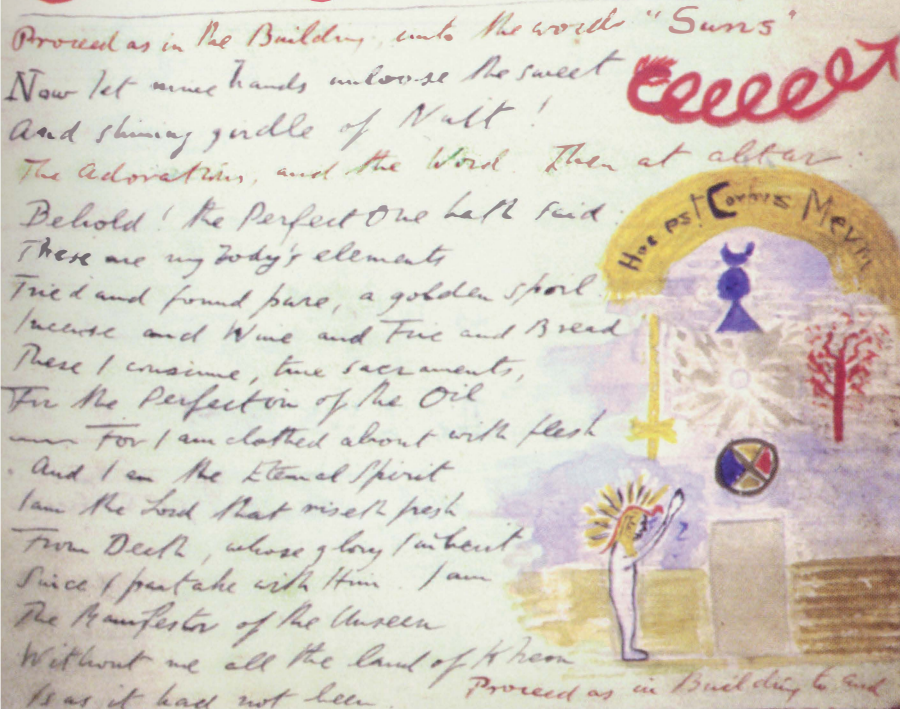 Proceed as in the Building, unto the words "Suns"
Now let mine hands unloose the sweet
And shining girdle of Nuit!
The adorations, and the Word. Then at altar.
Behold! the Perfect One hath said
These are my body's elements
Tried and found pure, a golden spoil.
Incense and Wine and Fire and Bread
These I consume, true sacraments,
For the Perfection of the Oil
For I am clothed about with flesh
And I am the Eternal Spirit
I am the Lord that riseth fresh
From Death, whose glory I inherit
Since I partake with Him. I am
The Manifestor of the Unseen
Without me all the land of Khem
Is as it had not been.
Proceed as in Building to end
Hoc est Corpus Meum